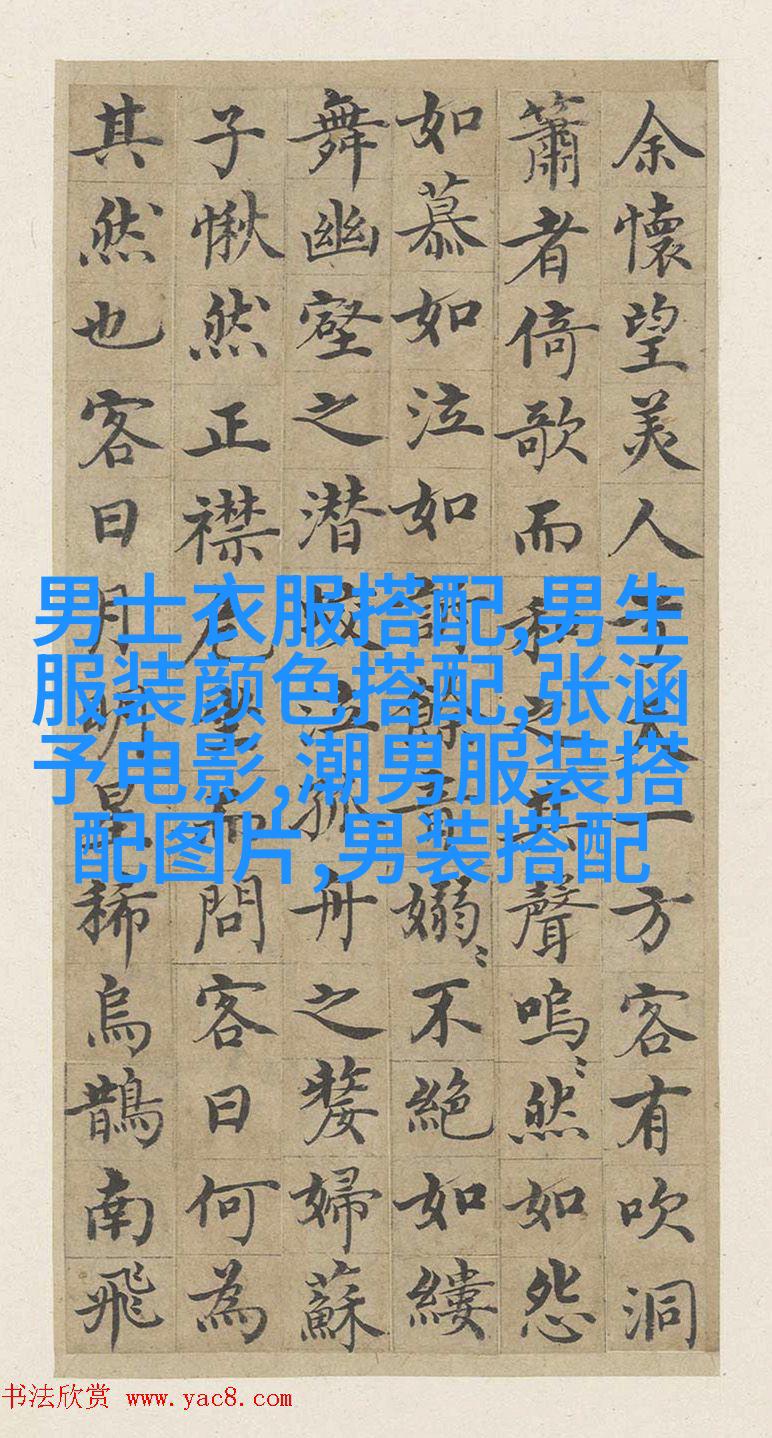 余懷望美人天一方客有吹洞
簫者倚歌而和之其聲嗚〻然如怨
如慕如泣如訴餘音嫋〻不絕如縷
舞幽壑之潜蛟泣孤舟之嫠婦蘇
子愀然正襟危坐而問客曰何為
其然也客曰月明星稀烏鵲南飛
男士衣服搭配,男生
服装颜色搭配,张涵
予电影,潮男服装搭
配图片,男装搭配
书法欣赏 www.yac8.com